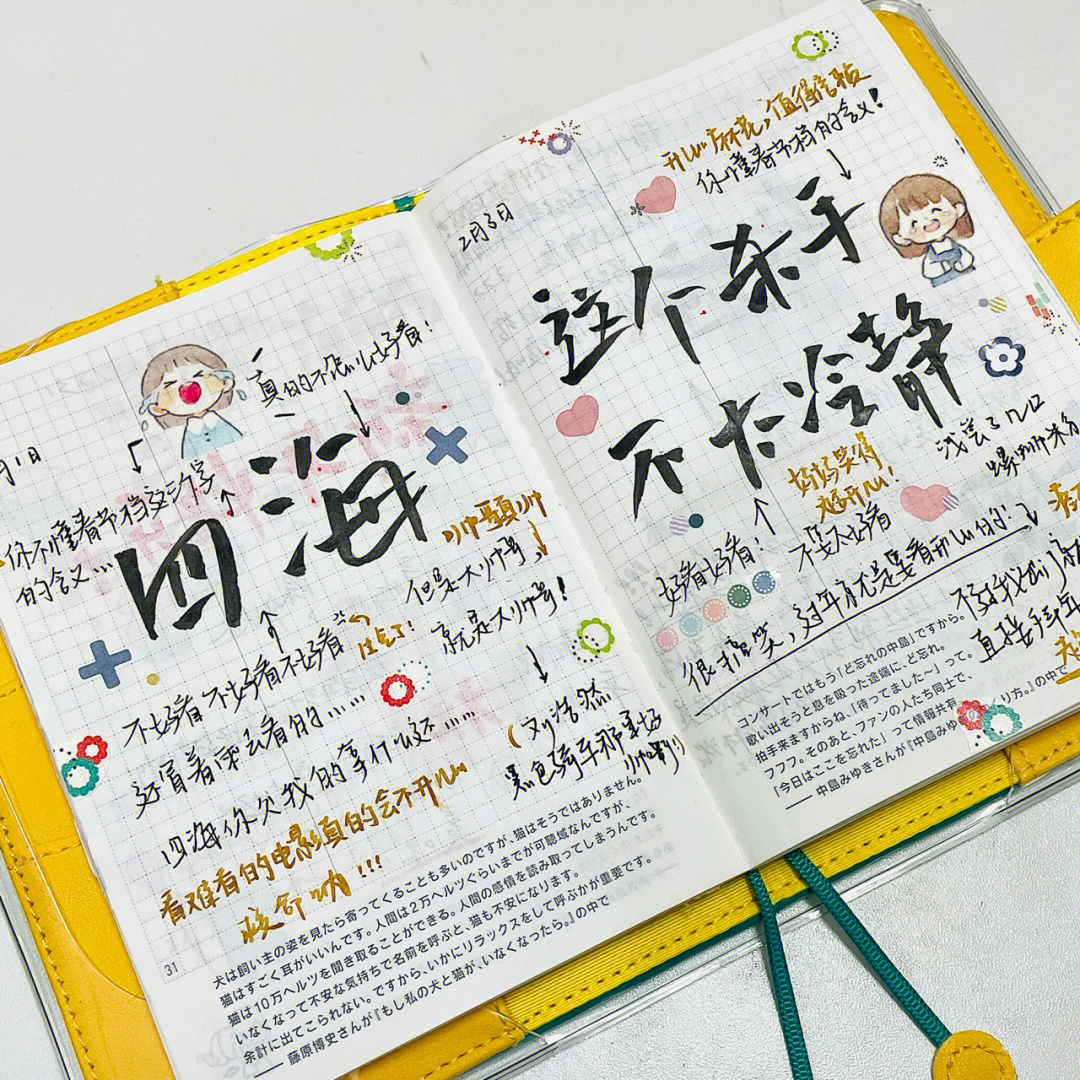 月1日
真的不怎么好看!
你不懂春节档这动字
的含义...
四海
帅是真帅
但是大帅哥
就是大帅哥!
不好看不好看不好看
还冒着雨去看的......
四海你欠我的拿什么还......
看难看的电影真的会不开心
!!!
(刘浩然
黑色骑车那里好
帅啊!)
31
犬は飼い主の姿を見たら寄ってくることも多いのですが、猫はそうではありません。
猫はすごく耳がいいんです。人間は2万ヘルツぐらいまでが可聴域なんですが、
猫は10万ヘルツを聞き取ることができる。人間の感情を読み取ってしまうんです。
いなくなって不安な気持ちで名前を呼ぶと、猫も不安になります。
余計に出てこられない。ですから、いかにリラックスをして呼ぶかが重要です。
―― 藤原博史さんが『もし私の犬と猫が、いなくなったら。』の中で
2月3日
开心麻花,值得信赖
你懂春节档的含义!
这个杀手
不太冷静
好好笑得
超开心!
好看好看!
不要太好看
很搞笑,过年就是要看开心的
直接拜年
コンサートではもう「ど忘れの中島」ですから。
歌い出そうと息を吸った途端に、ど忘れ。
拍手来ますからね、「待ってました~」って。
フフフ。そのあと、ファンの人たち同士で、
「今日はここを忘れた」って情報共有
―― 中島みゆきさんが『中島みゆ
り方。』の中で